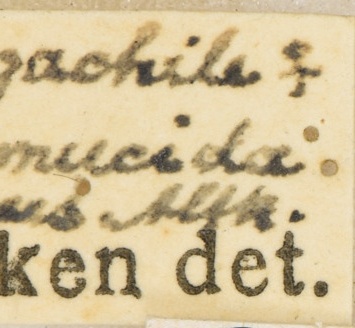 gachile ♀
mucida
us Alfk.
ken det.